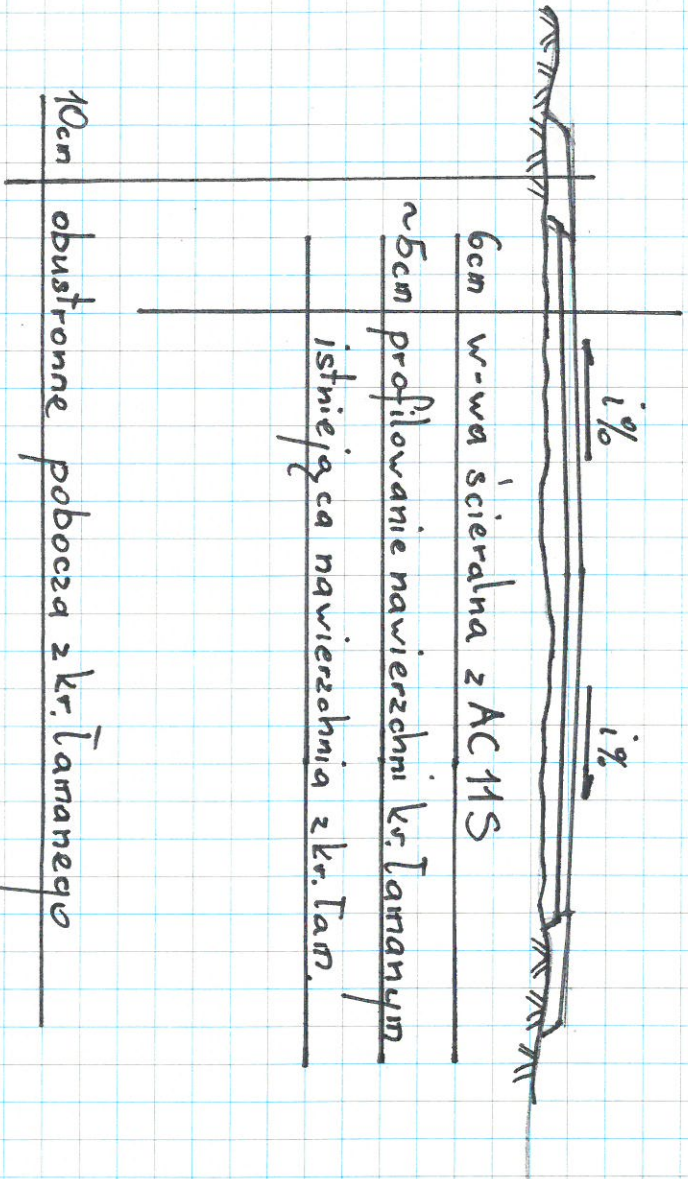 i% i%
6cm w-wa ścieralna z AC 11S
~5cm profilowanie nawierzchni kr. łamanym
istniejąca nawierzchnia z kr. łam.
10cm obustronne pobocza z kr. łamanego